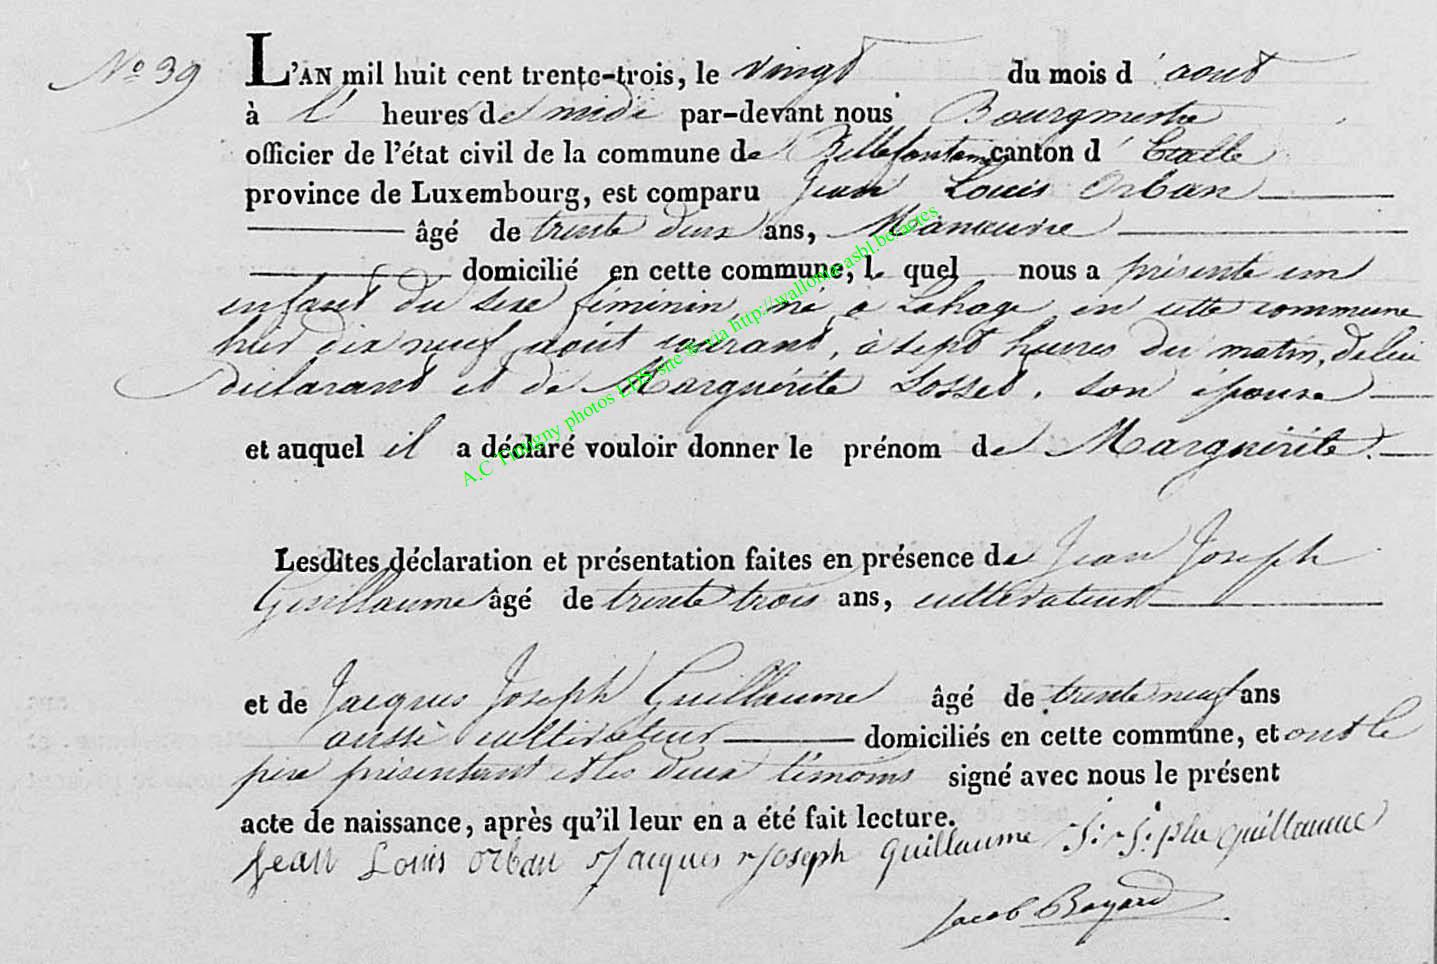 No 39
L'AN mil huit cent trente-trois, le vingt du mois d'aout
à l' heures de midi par-devant nous Bourgmestre
officier de l'état civil de la commune de Bellefontaine canton d'Etalle
province de Luxembourg, est comparu Jean Louis Orban
âgé de trente deux ans, Manœuvre
domicilié en cette commune, lequel nous a présenté un
enfant du sexe féminin, né à Lahage en cette commune
hier dix neuf août courant, à sept heures du matin, de lui
déclarant et de Marguérite Losset, son épouse
et auquel il a déclaré vouloir donner le prénom de Marguérite.
Lesdites déclaration et présentation faites en présence de Jean Joseph
Guillaume âgé de trente trois ans, cultivateur
et de Jacques Joseph Guillaume âgé de trente neuf ans
aussi cultivateur domiciliés en cette commune, et ont le
père présentant et les deux témoins signé avec nous le présent
acte de naissance, après qu'il leur en a été fait lecture.
Jean Louis Orban Jacques Joseph Guillaume J: J: phe guillaume
Jacob Bayard
A.C Tintigny photos LDS site ® via http://wallonia-asbl.be/actes